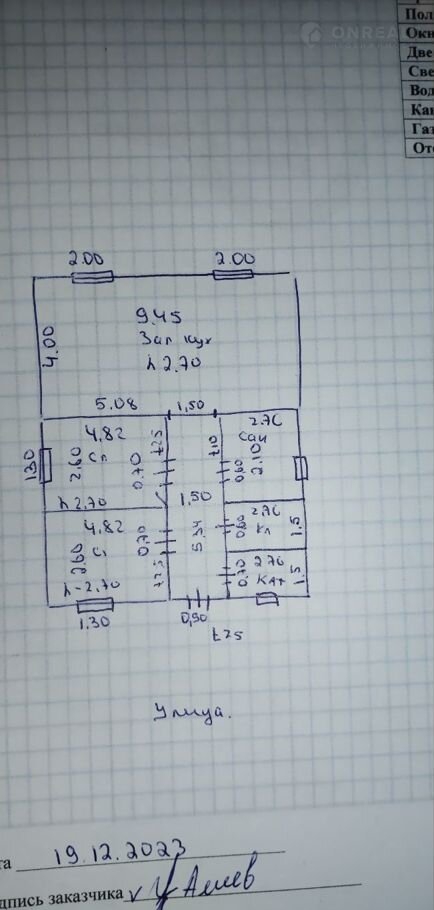 ONREA
Пол
Окн
Две
Све
Вод
Кан
Газ
Ото
2.00
2.00
9.45
Зал кух
h 2.70
4.00
5.08
1,50
2.76
4,82
Сп
2,60
1.30
h 2.70
0.70
Сан
2.10
0.60
1,50
4,82
2,60
h - 2,70
0,70
5.34
2,76
Кл
1.5
2.76
Кат
1.5
0.70
1.30
0,90
Улица.
та 19.12.2023
дпись заказчика